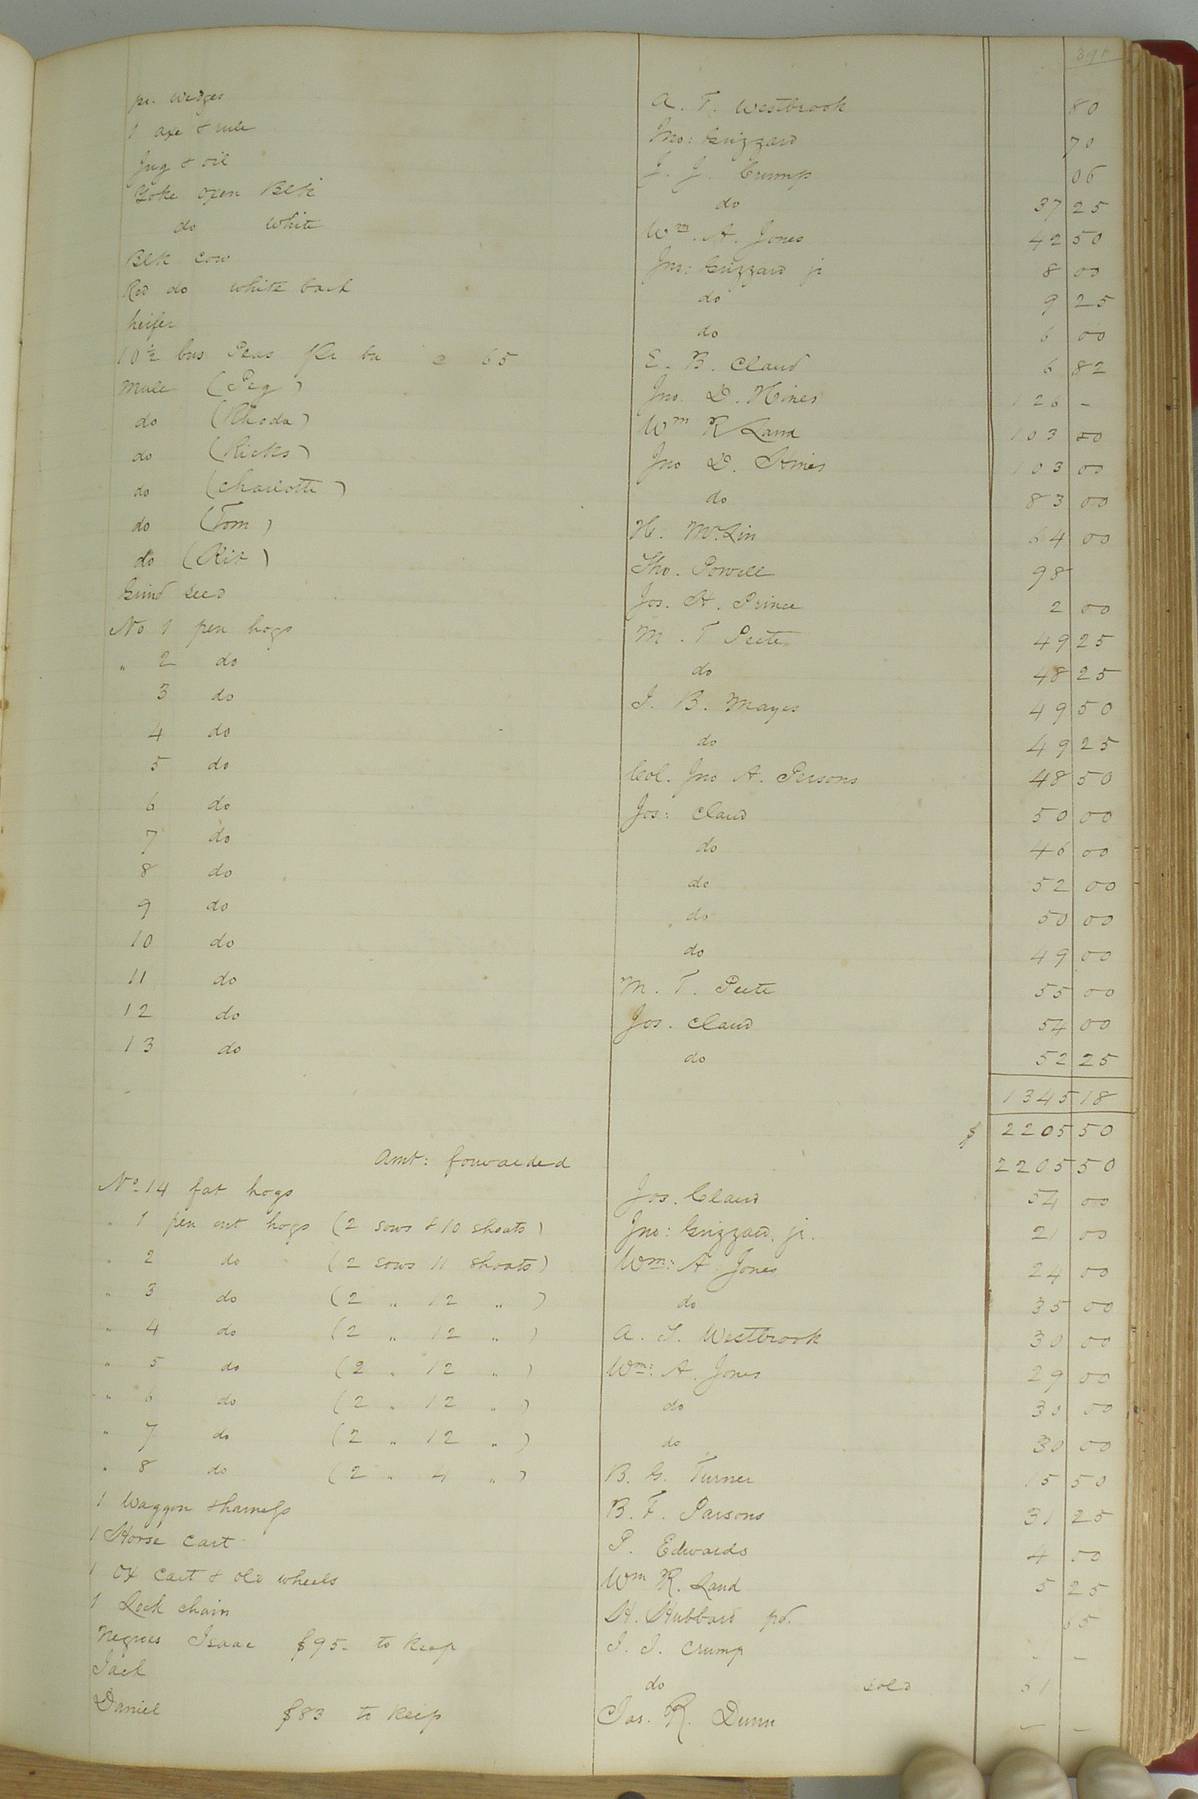 pr. wedges A. T. Westbrook 80
1 axe & rule Jno: Grizzard 70
Jug & oil J. J. Crump 06
Yoke oxen Blk do 37 25
do white Wm. A. Jones 42 50
Blk cow Jno: Grizzard jr 8 00
Red do white back do 9 25
heifer do 6 00
10½ bus Peas per bu @ 65 E. B. Claud 6 82
Mule (Peg) Jno. D. Hines 126 -
do (Rhoda) Wm R Land 103 00
do (Ricks) Jno D. Hines 103 00
do (Charlotte) do 83 00
do (Tom) H. McLin 64 00
do (Kit) Tho. Powell 98
seed Jos. H. Prince 2 00
No 1 pen hogs M. T Peete 49 25
" 2 do do 48 25
3 do J. B. Mayes 49 50
4 do do 49 25
5 do Col. Jno A. Persons 48 50
6 do Jos: Claud 50 00
7 do do 46 00
8 do do 52 00
9 do do 50 00
10 do do 49 00
11 do M. T. Peete 55 00
12 do Jos. Claud 54 00
13 do do 52 25
1345 18
$ 2205 50
Amt: forwarded 2205 50
No 14 fat hogs Jos. Claud 54 00
" 1 pen out hogs (2 sows & 10 shoats) Jno: Grizzard, jr. 21 00
" 2 do (2 sows 11 shoats) Wm: A Jones 24 00
" 3 do (2 " 12 " ) do 35 00
" 4 do (2 " 12 " ) A. T. Westbrook 30 00
" 5 do (2 " 12 " ) Wm: A. Jones 29 00
" 6 do (2 " 12 " ) do 30 50
" 7 do (2 " 12 " ) do 30 00
" 8 do (2 " " ) B. G. Turner 15 50
1 Waggon & harness B. F. Parsons 31 25
1 Horse Cart P. Edwards 4 50
1 Ox Cart & old wheels Wm R. Land 5 25
1 Lock chain H. Hubbard pd. 65
Negroes Isaac $95- to keep J. J. Crump - -
Jack do sold 51
Daniel $83 to keep Jas. R. Dunn - -